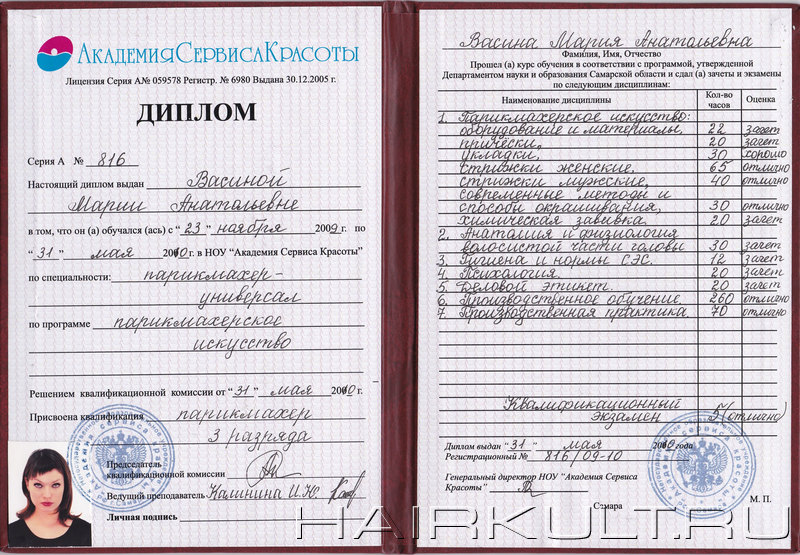 АкадемияСервисаКрасоты
Лицензия Серия А№ 059578 Регистр. № 6980 Выдана 30.12.2005 г.
ДИПЛОМ
Серия А № 816
Настоящий диплом выдан Васиной
Марии Анатольевне
в том, что он (а) обучался (ась) с “ 23 ” ноября 2009г. по
“ 31 ” мая 2010г. в НОУ “Академия Сервиса Красоты”
по специальности: парикмахер-
универсал
по программе парикмахерское
искусство
Решением квалификационной комиссии от “ 31 ” мая 2010г.
Присвоена квалификация парикмахер
3 разряда
Председатель
квалификационной комиссии
Ведущий преподаватель Калинина И.Ю.
Личная подпись
Васина Мария Анатольевна
Фамилия, Имя, Отчество
Прошел (а) курс обучения в соответствии с программой, утвержденной
Департаментом науки и образования Самарской области и сдал (а) зачеты и экзамены
по следующим дисциплинам:
Наименование дисциплины Кол-во часов Оценка
1. Парикмахерское искусство:
оборудование и материалы, 22 зачет
причёски, 20 зачет
укладки, 30 хорошо
стрижки женские, 65 отлично
стрижки мужские, 40 отлично
современные методы и
способы окрашивания, 30 отлично
химическая завивка. 20 зачет
2. Анатомия и физиология
волосистой части головы 30 зачет
3. Гигиена и нормы СЭС. 12 зачет
4. Психология. 20 зачет
5. Деловой этикет. 20 зачет
6. Производственное обучение. 260 отлично
7. Производственная практика. 70 отлично
Квалификационный
экзамен 5 (отлично)
Диплом выдан “ 31 ” мая 2010 года
Регистрационный № 816/09-10
Генеральный директор НОУ “Академия Сервиса
Красоты”
Самара
М. П.
HAIRKULT.RU